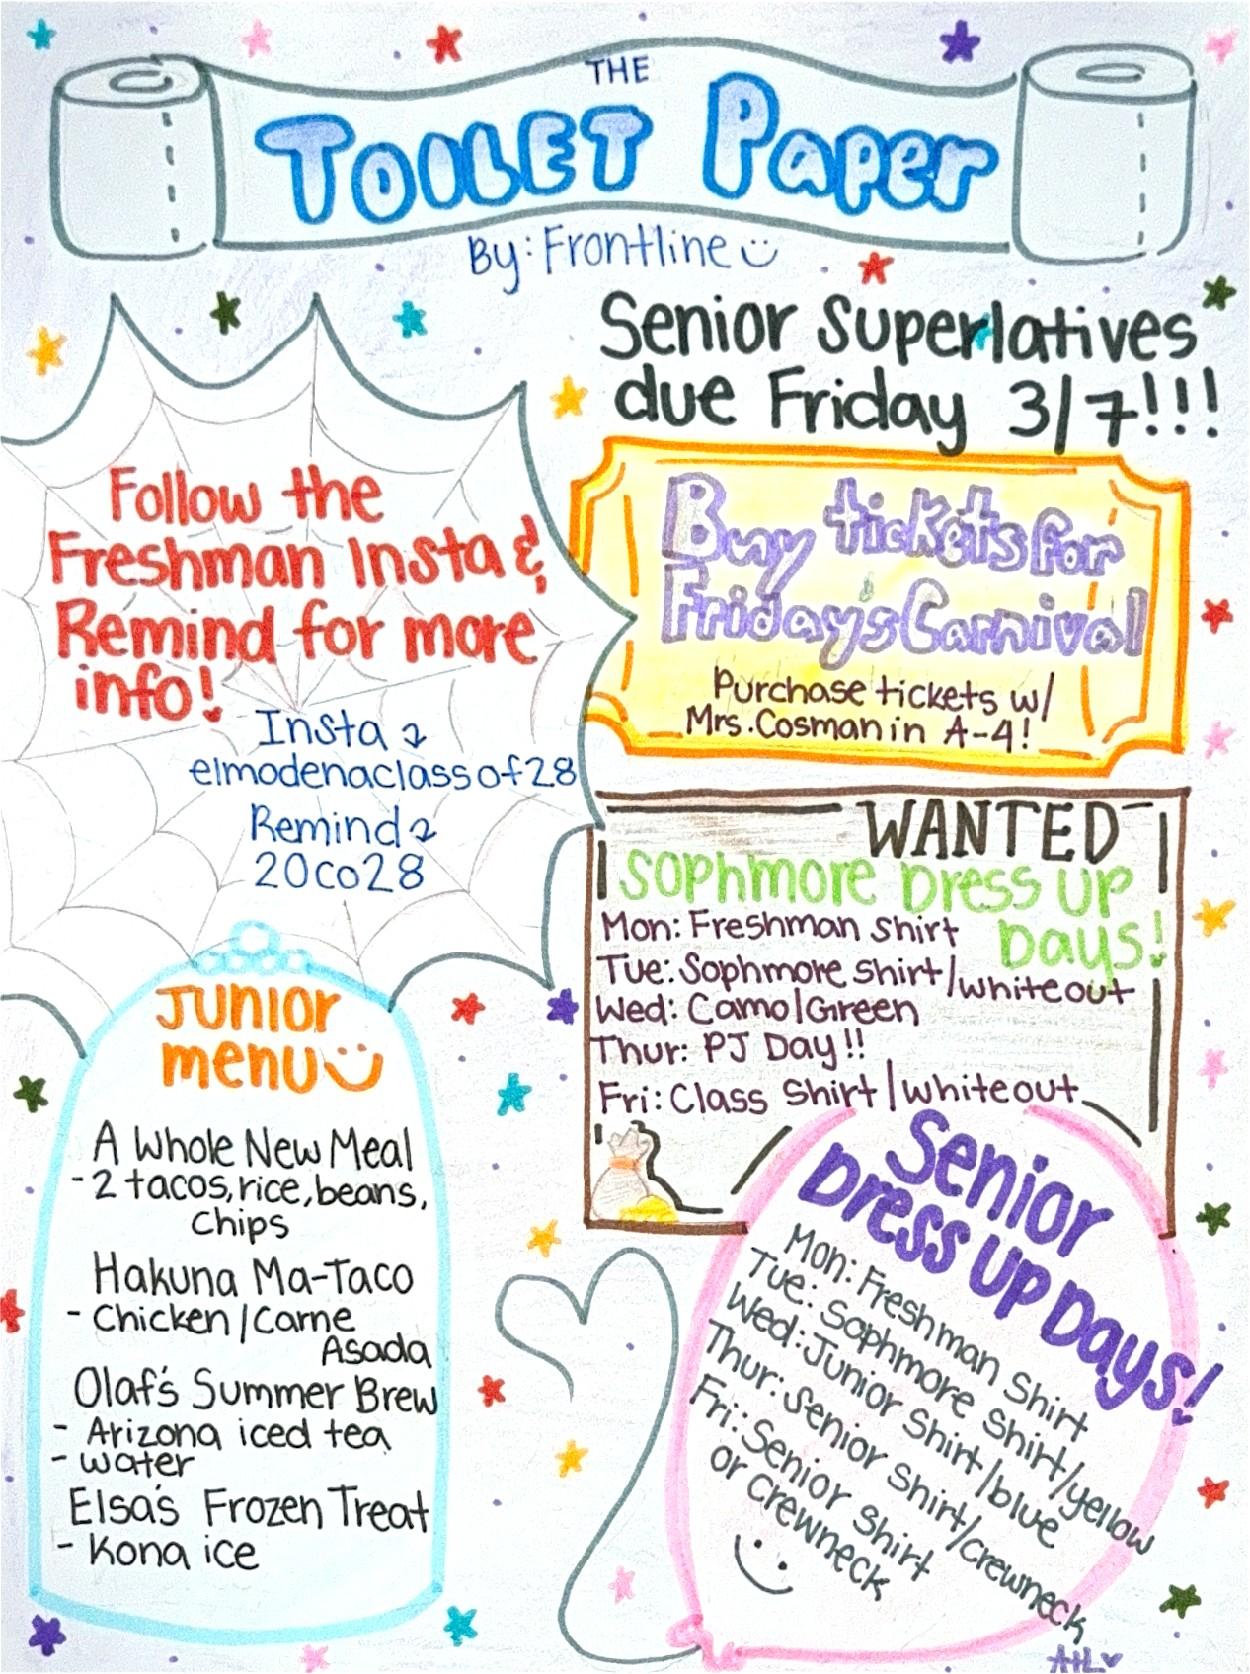 THE
TOILET Paper
By: Frontline
Senior Superlatives
due Friday 3/7!!!
Follow the
Freshman Insta &
Remind for more
info!
Insta
elmodenaclassof28
Remind
20co28
Buy tickets for
Friday's Carnival
Purchase tickets w/
Mrs. Cosman in A-4!
WANTED
Sophmore Dress Up
Days!
Mon: Freshman Shirt
Tue: Sophmore Shirt/whiteout
Wed: Camo/Green
Thur: PJ Day!!
Fri: Class Shirt/whiteout
JUNIOR
menu
A Whole New Meal
- 2 tacos, rice, beans,
Chips
Hakuna Ma-Taco
- Chicken/Carne
Asada
Olaf's Summer Brew
- Arizona iced tea
- water
Elsa's Frozen Treat
- Kona ice
Senior
Dress Up Days!
Mon: Freshman Shirt
Tue: Sophmore Shirt/yellow
Wed: Junior Shirt/blue
Thur: Senior Shirt/crewneck
Fri: Senior Shirt
or crewneck